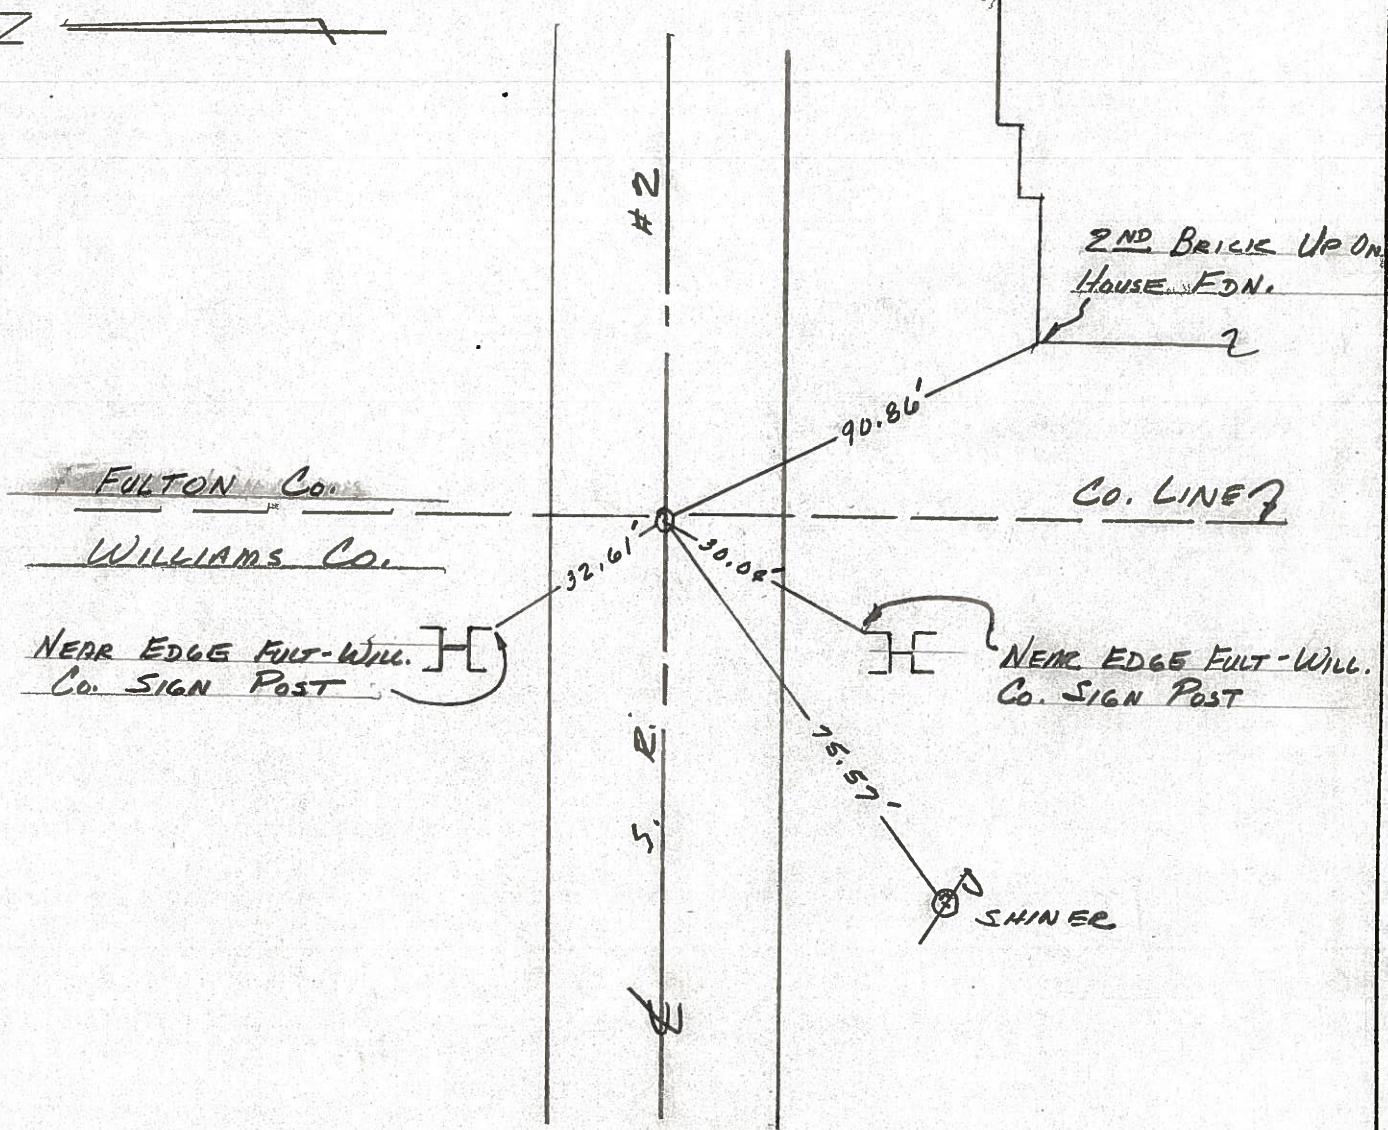 N
# 2
2ND BRICK UP ON
HOUSE FDN.
90.86'
FULTON CO.
CO. LINE
WILLIAMS CO.
32.61'
30.08'
NEAR EDGE FULT-WILL.
CO. SIGN POST
NEAR EDGE FULT-WILL.
CO. SIGN POST
S. R.
75.57'
SHINER